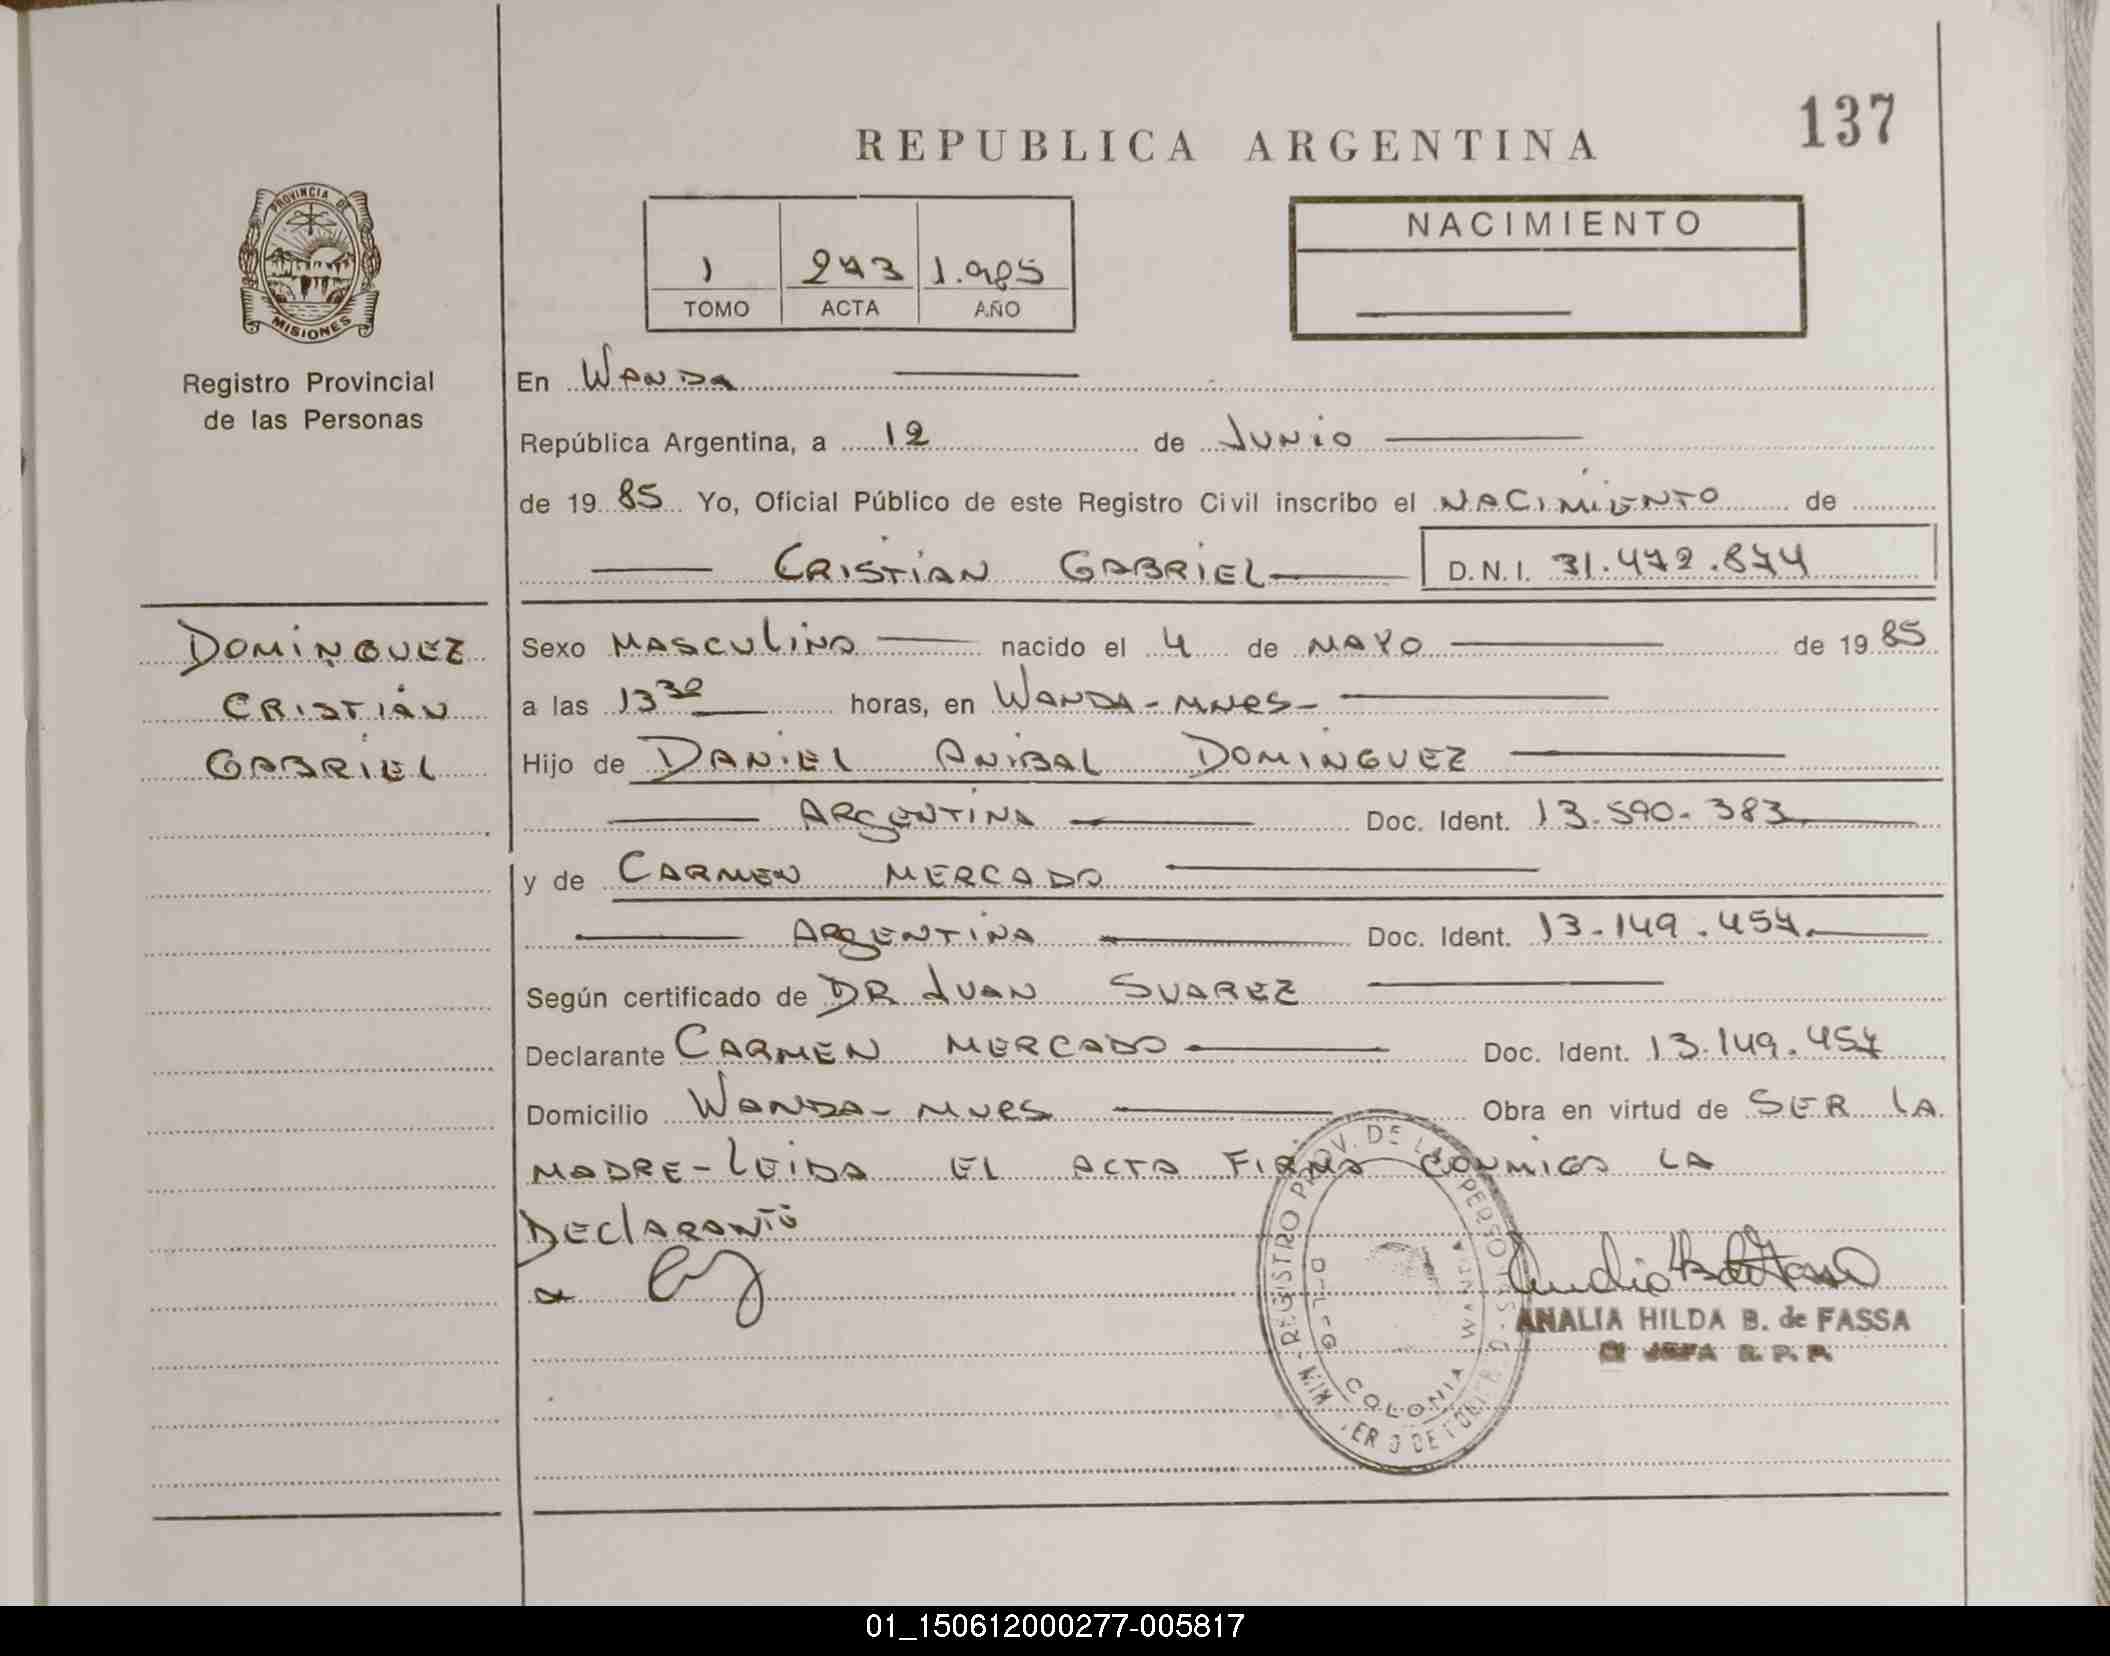 137
REPUBLICA ARGENTINA
PROVINCIA DE
MISIONES
Registro Provincial
de las Personas
1 273 1.985
TOMO ACTA AÑO
NACIMIENTO
En WANDA
República Argentina, a 12 de JUNIO
de 19 85 Yo, Oficial Público de este Registro Civil inscribo el NACIMIENTO de
CRISTIAN GABRIEL D.N.I. 31.472.874
DOMINGUEZ
CRISTIAN
GABRIEL
Sexo MASCULINO nacido el 4 de MAYO de 19 85
a las 13 30 horas, en WANDA-MNES-
Hijo de DANIEL ANIBAL DOMINGUEZ
ARGENTINA Doc. Ident. 13.590.383
y de CARMEN MERCADO
ARGENTINA Doc. Ident. 13.149.457.
Según certificado de DR JUAN SUAREZ
Declarante CARMEN MERCADO Doc. Ident. 13.149.457
Domicilio WANDA-MNES Obra en virtud de SER LA
MADRE-LEIDA EL ACTA FIRMA CONMIGO LA
DECLARANTE
REGISTRO PROV. DE LAS PERSONAS
COLONIA WANDA
ANALIA HILDA B. de FASSA
JEFA R. P. P.
01_150612000277-005817